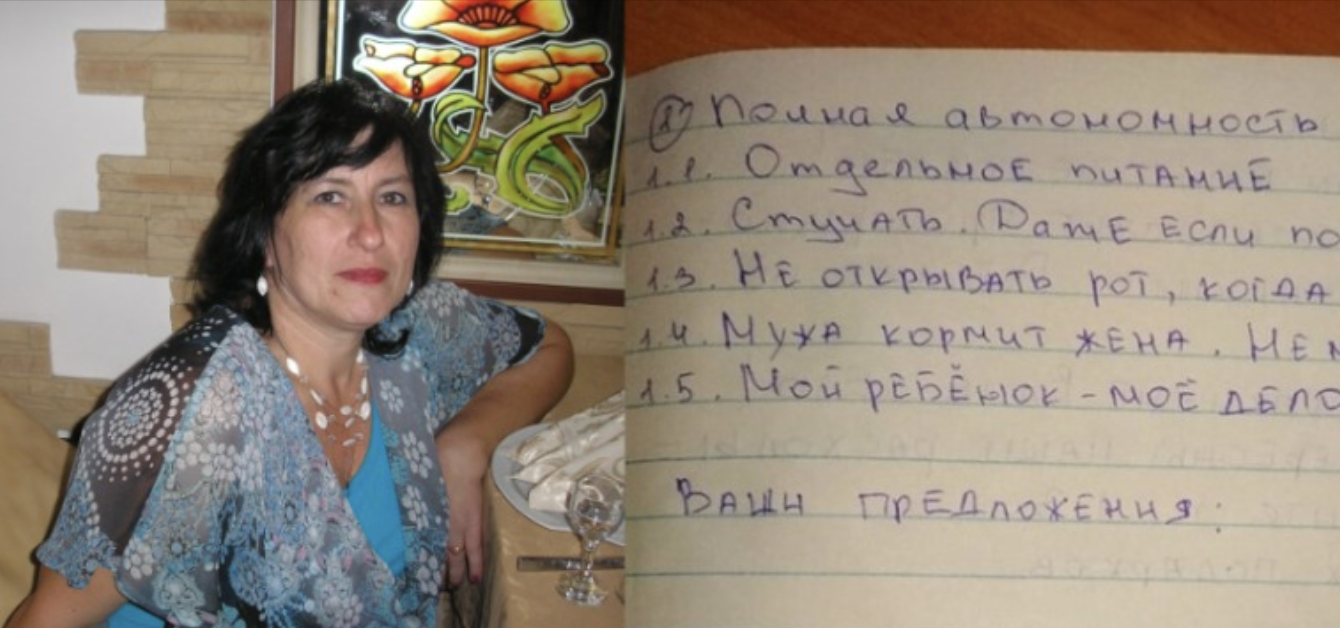 ① Полная автономность
1.1. Отдельное питание
1.2. Стучать. Даже если по
1.3. Не открывать рот, когда
1.4. Мужа кормит жена. Не
1.5. Мой ребёнок - моё дело
Ваши предложения: